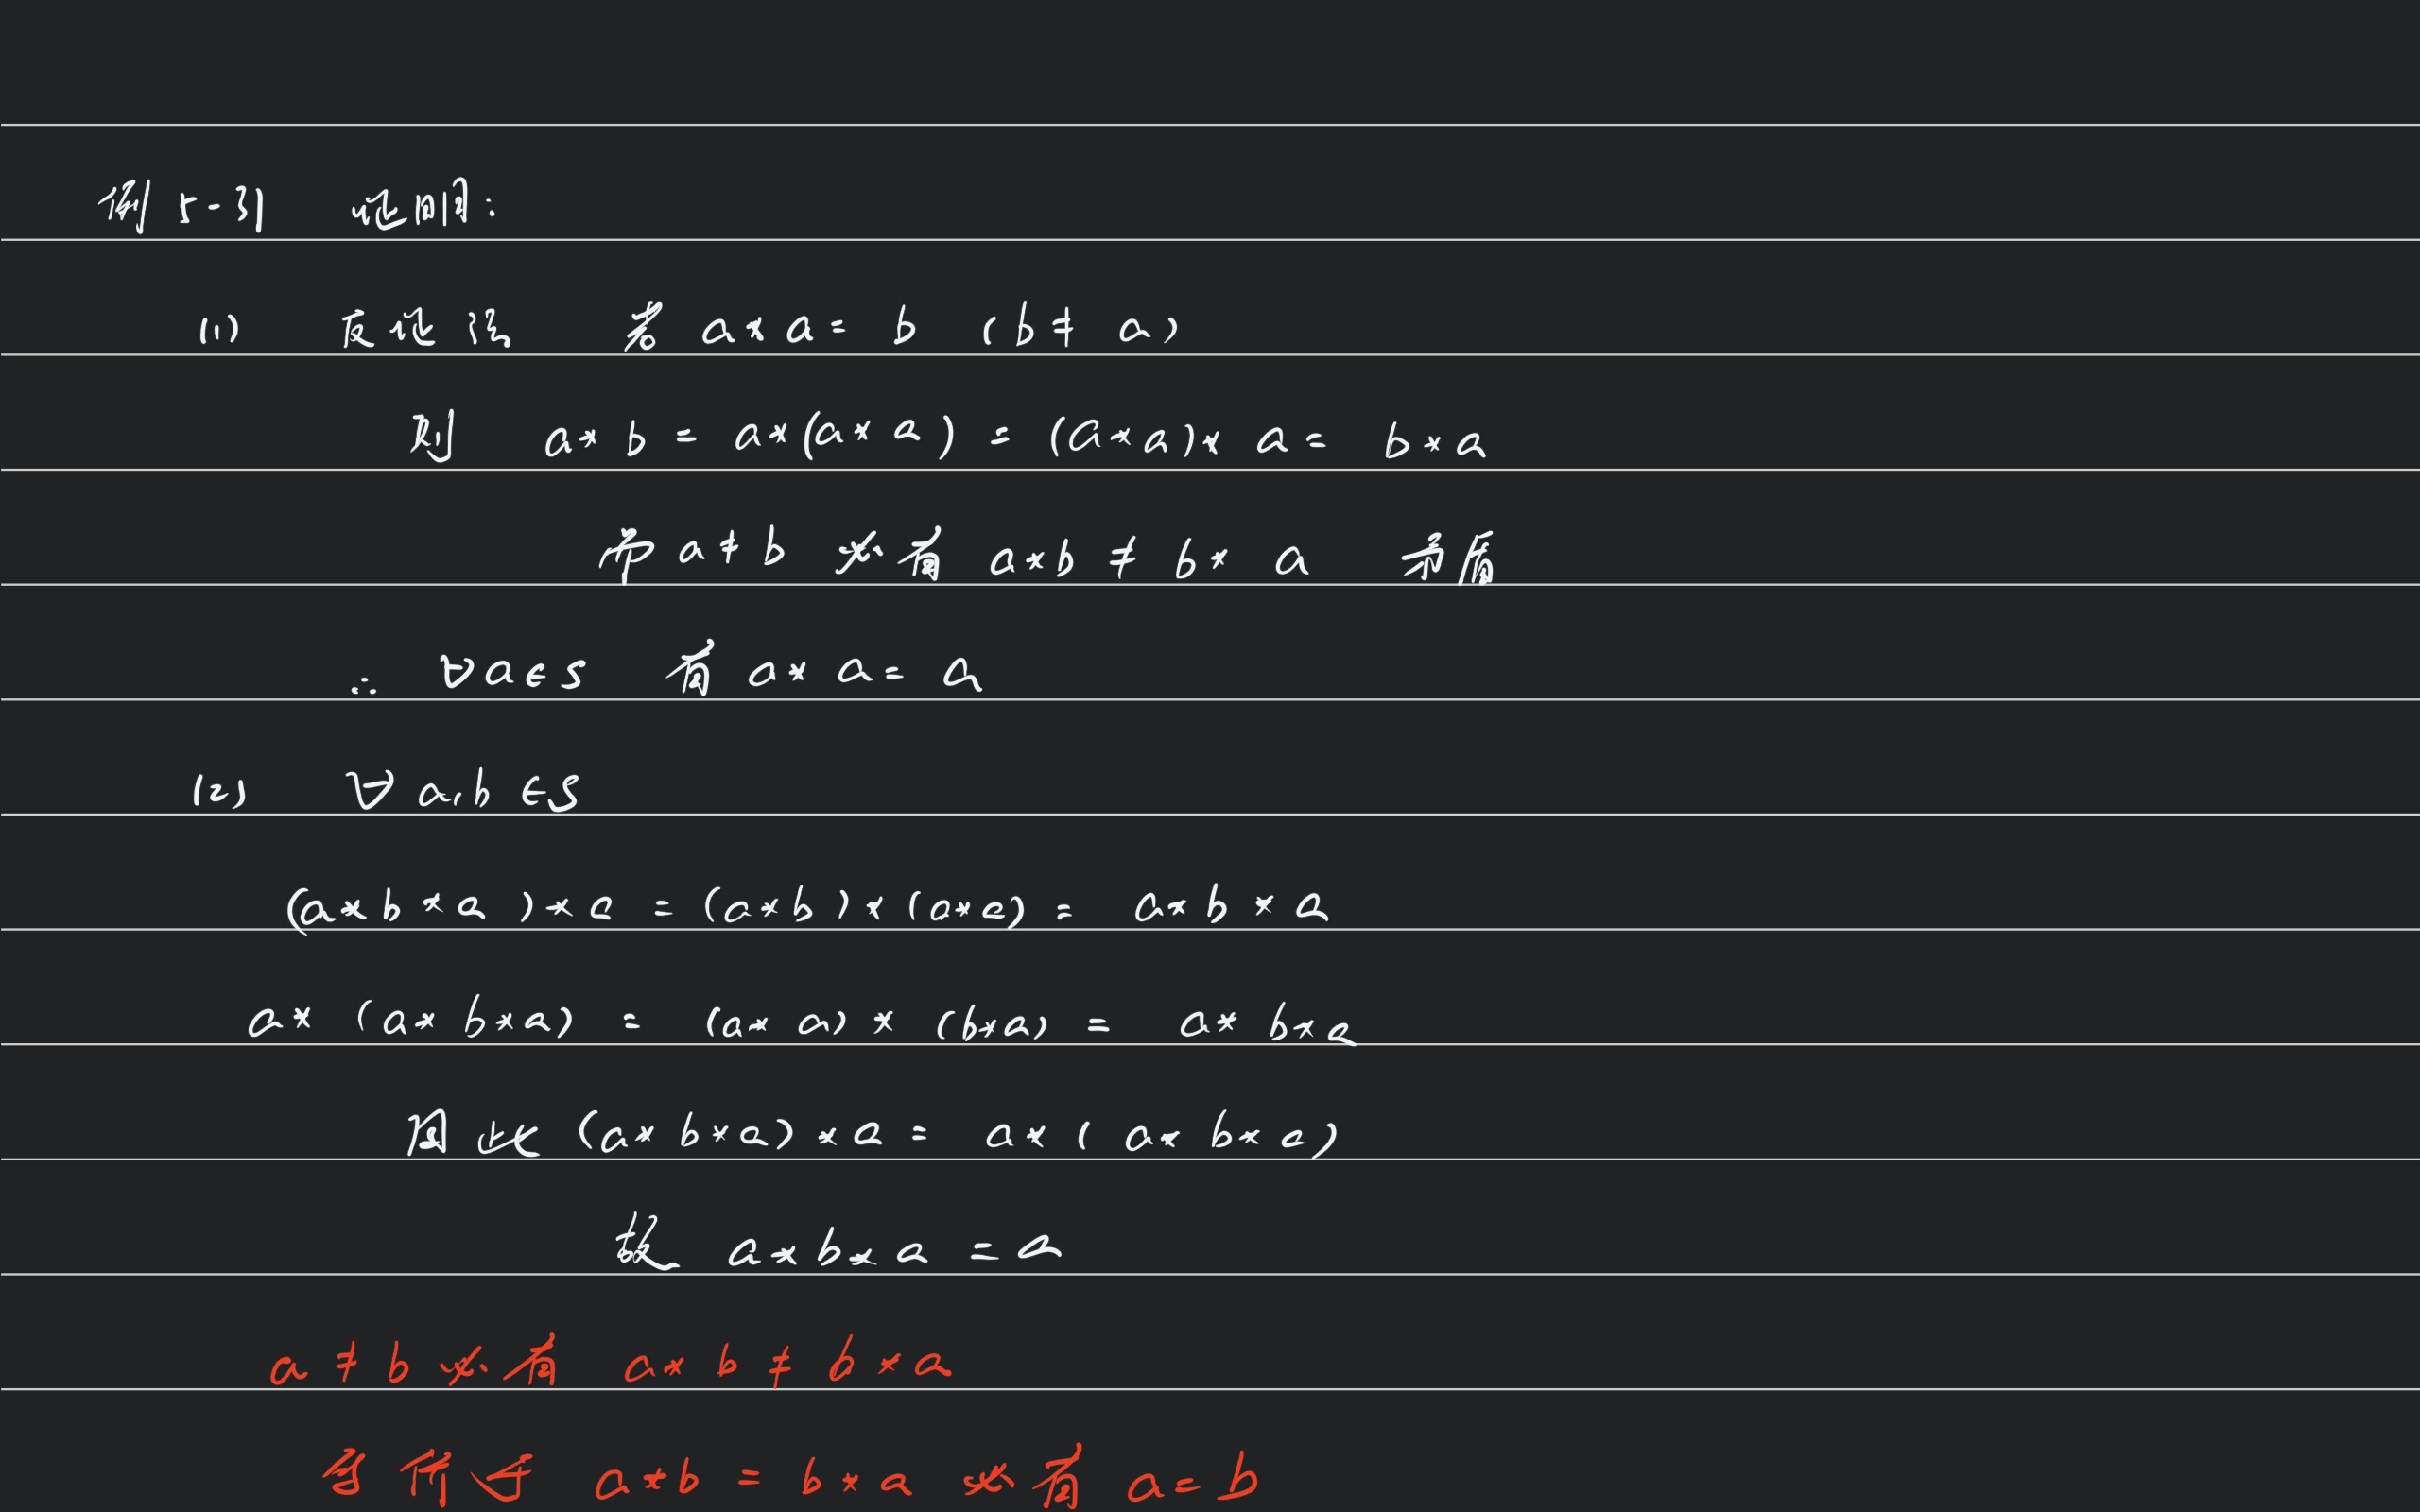 例5-31 证明:
(1) 反证法 若 a*a= b (b≠ a)
则 a*b = a*(a*a) = (a*a)* a= b*a
而 a≠b 必有 a*b ≠ b* a 矛盾
∴ ∀a∈S 有 a* a= a
(2) ∀a,b ∈S
(a*b*a)*a = (a*b)*(a*a) = a*b*a
a* (a*b*a) = (a* a) * (b*a) = a* b*a
因此 (a* b*a)*a = a*( a* b* a)
故 a*b*a =a
a≠b 必有 a*b ≠ b*a
等价于 a*b = b*a 必有 a=b